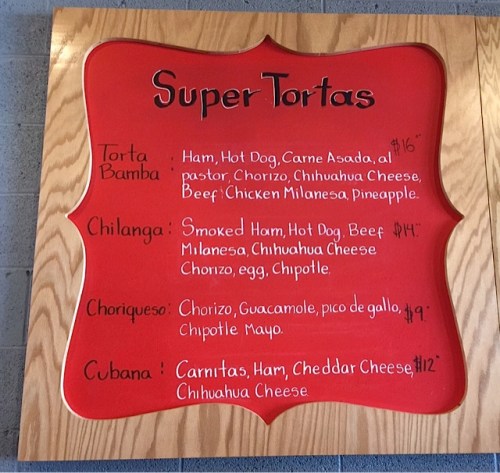 Super Tortas
Torta Bamba : Ham, Hot Dog, Carne Asada, al $16
pastor, Chorizo, Chihuahua Cheese,
Beef Chicken Milanesa, Pineapple.
Chilanga: Smoked Ham, Hot Dog, Beef $14
Milanesa, Chihuahua Cheese
Chorizo, egg, Chipotle.
Choriqueso: Chorizo, Guacamole, pico de gallo, $9
Chipotle Mayo.
Cubana: Carnitas, Ham, Cheddar Cheese, $12
Chihuahua Cheese